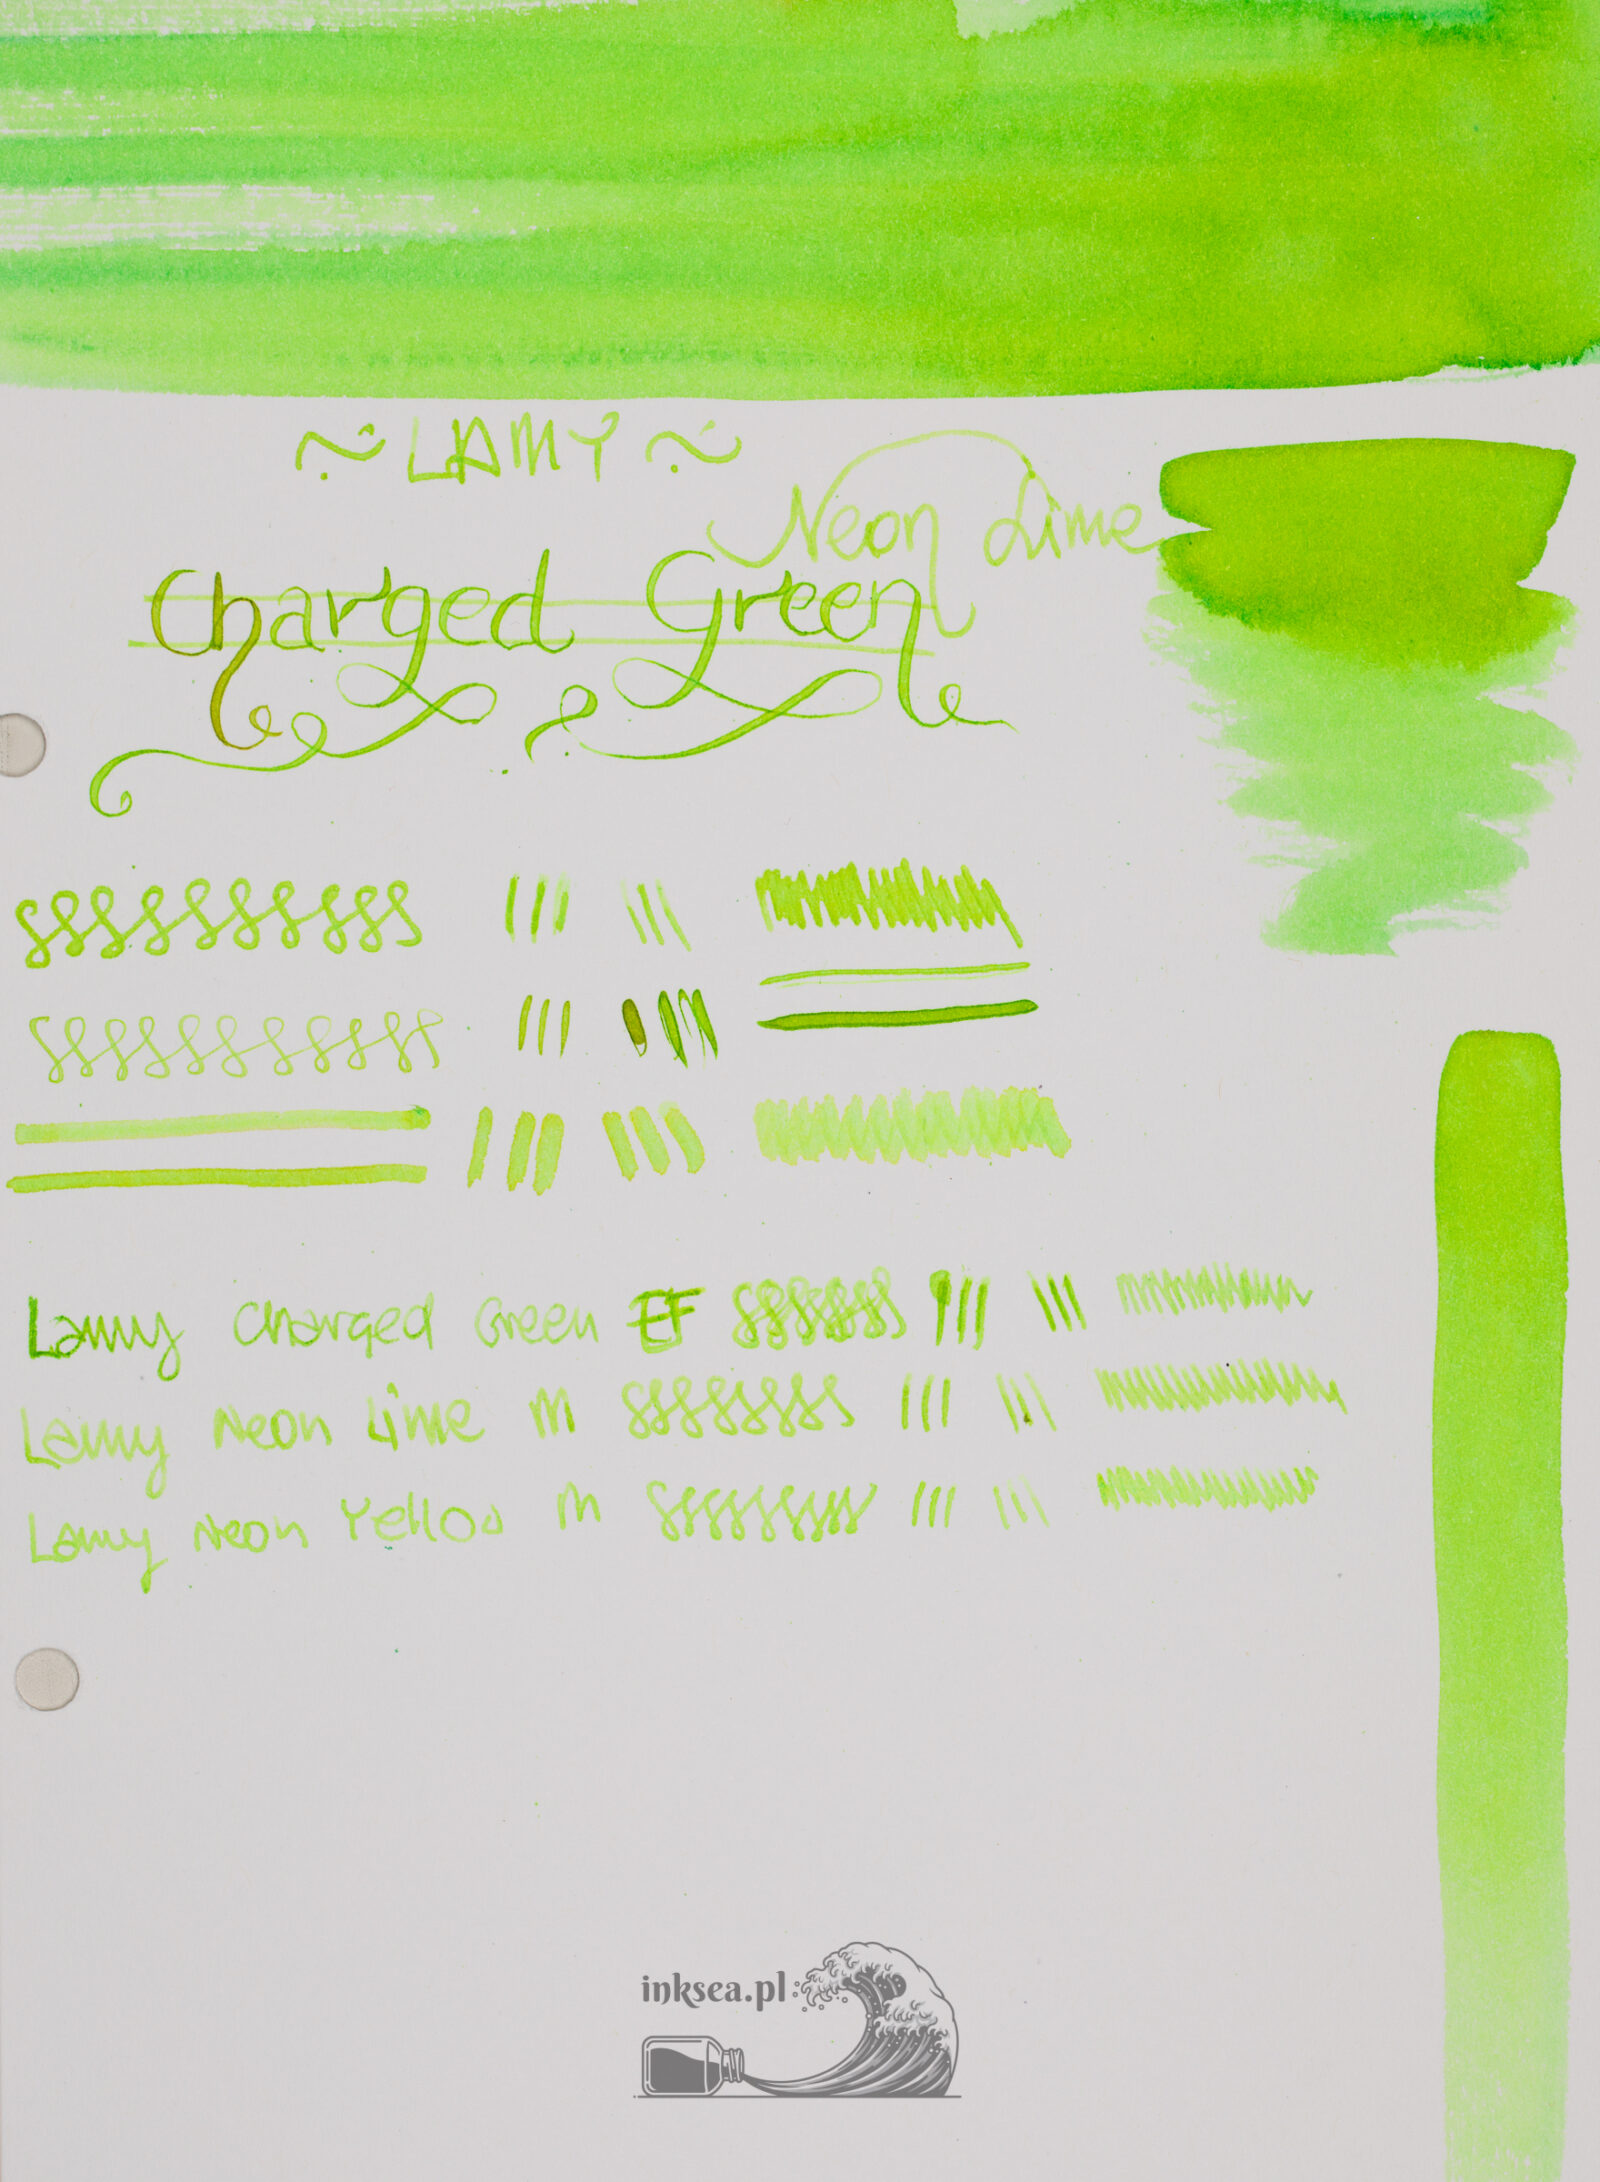 ~ LAMY ~
Neon Lime
Charged Green
Lamy Charged Green EF
Lamy Neon Lime M
Lamy Neon Yellow M
inksea.pl